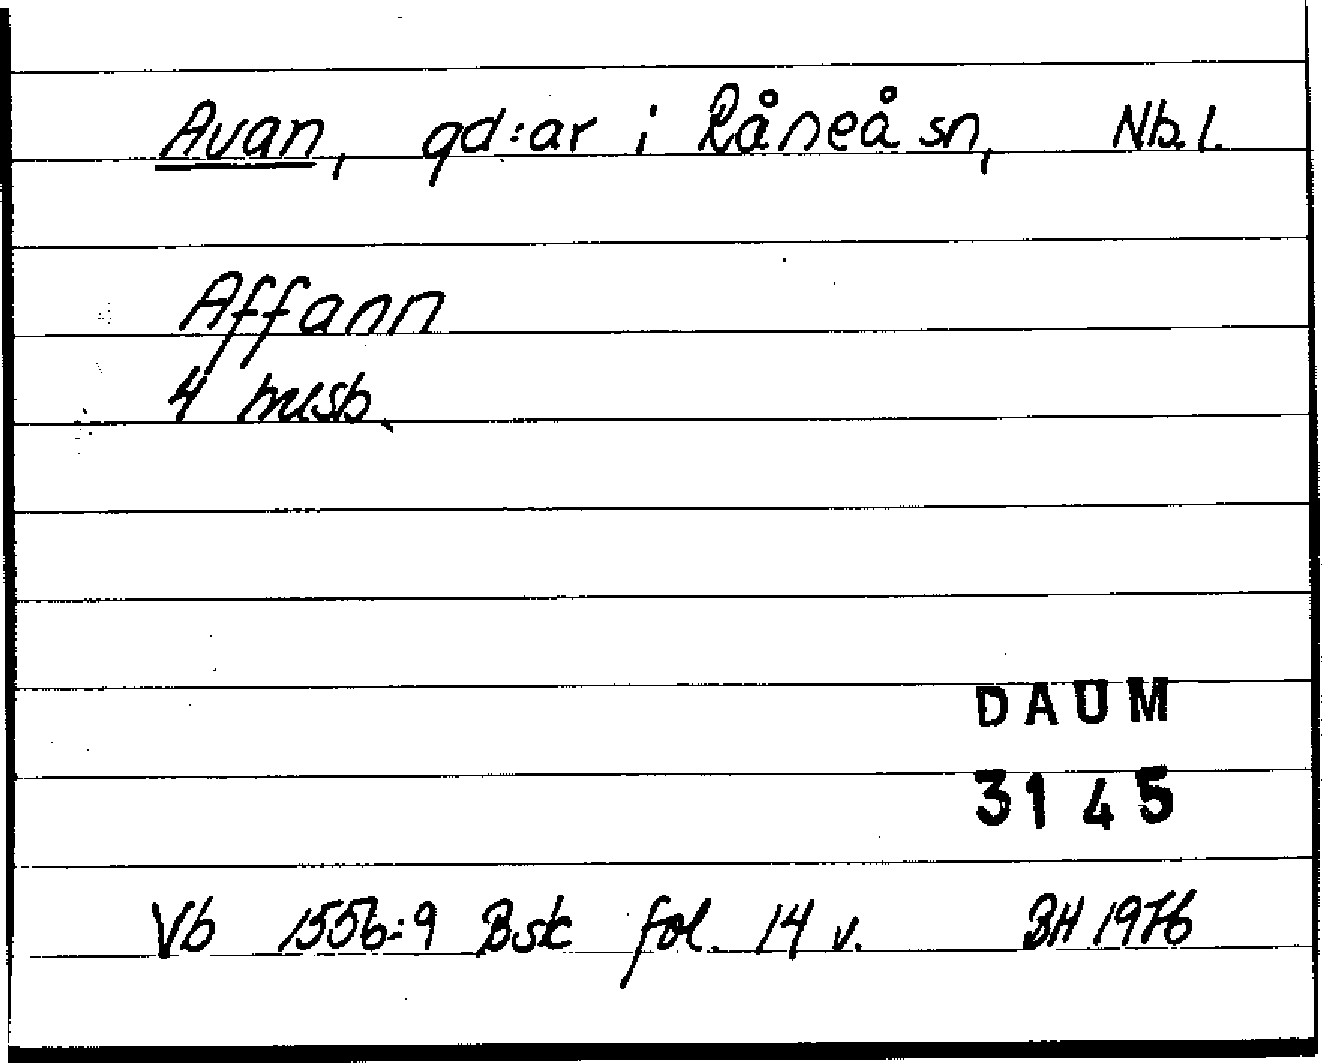 Avan, gd:ar i Råneå sn, Nb.l.
Affann
4 husb.
DAUM
3145
Vb 1556:9 Bsk fol. 14 v. BH 1976